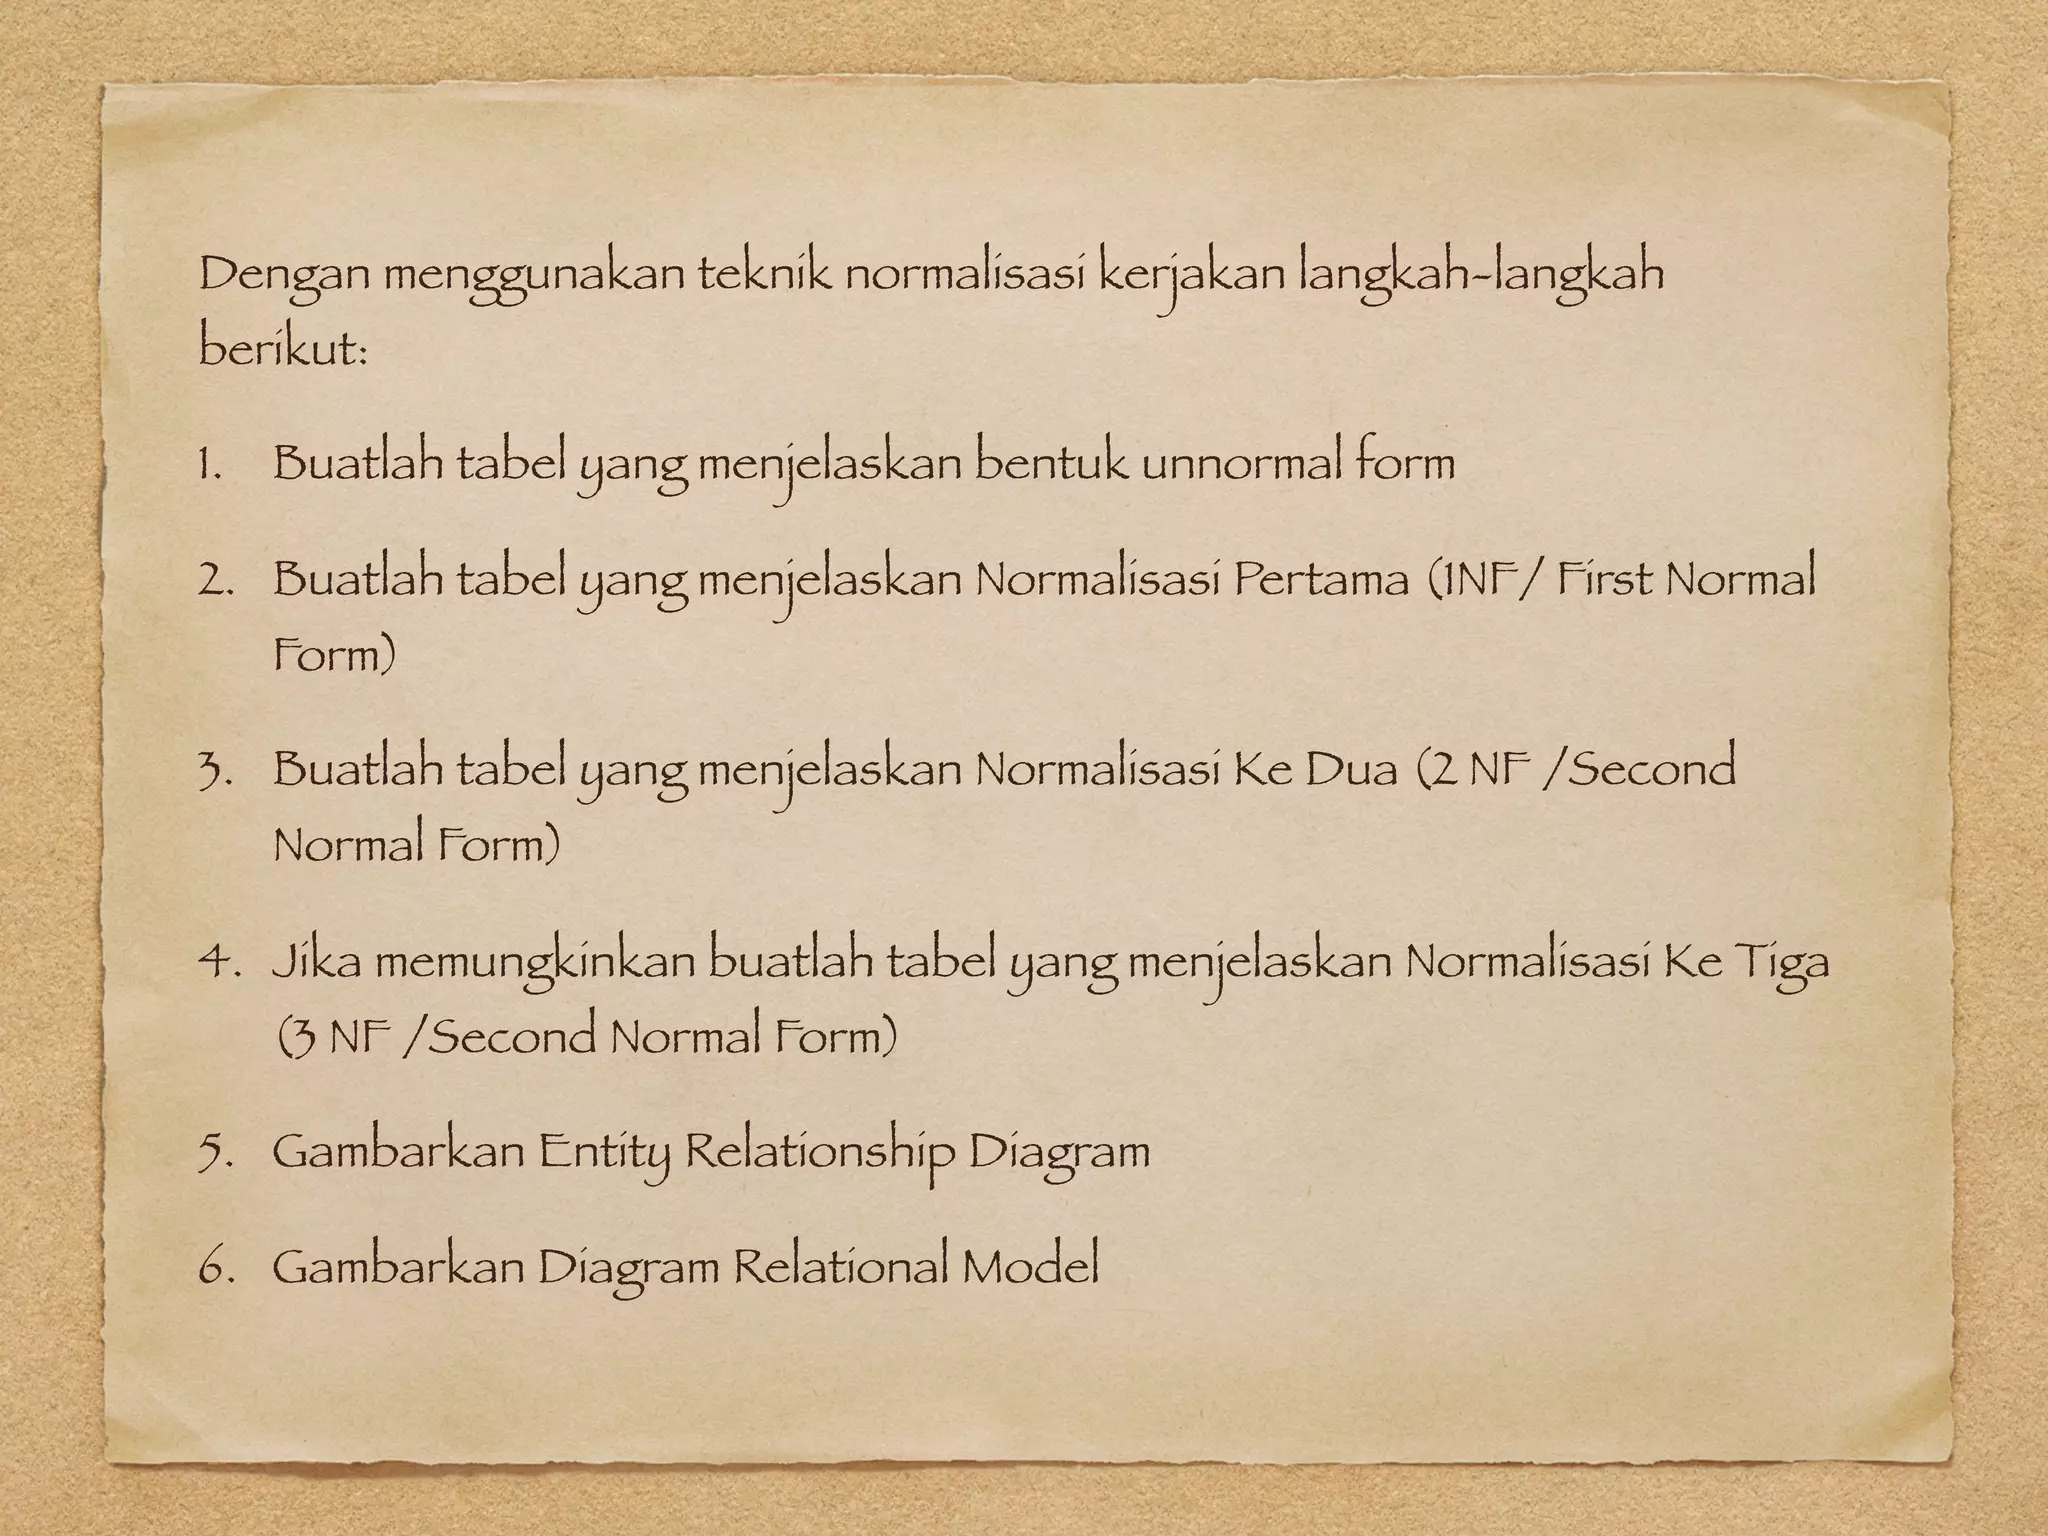 Dengan menggunakan teknik normalisasi kerjakan langkah-langkah
berikut:
1. Buatlah tabel yang menjelaskan bentuk unnormal form
2. Buatlah tabel yang menjelaskan Normalisasi Pertama (1NF/ First Normal
Form)
3. Buatlah tabel yang menjelaskan Normalisasi Ke Dua (2 NF /Second
Normal Form)
4. Jika memungkinkan buatlah tabel yang menjelaskan Normalisasi Ke Tiga
(3 NF /Second Normal Form)
5. Gambarkan Entity Relationship Diagram
6. Gambarkan Diagram Relational Model